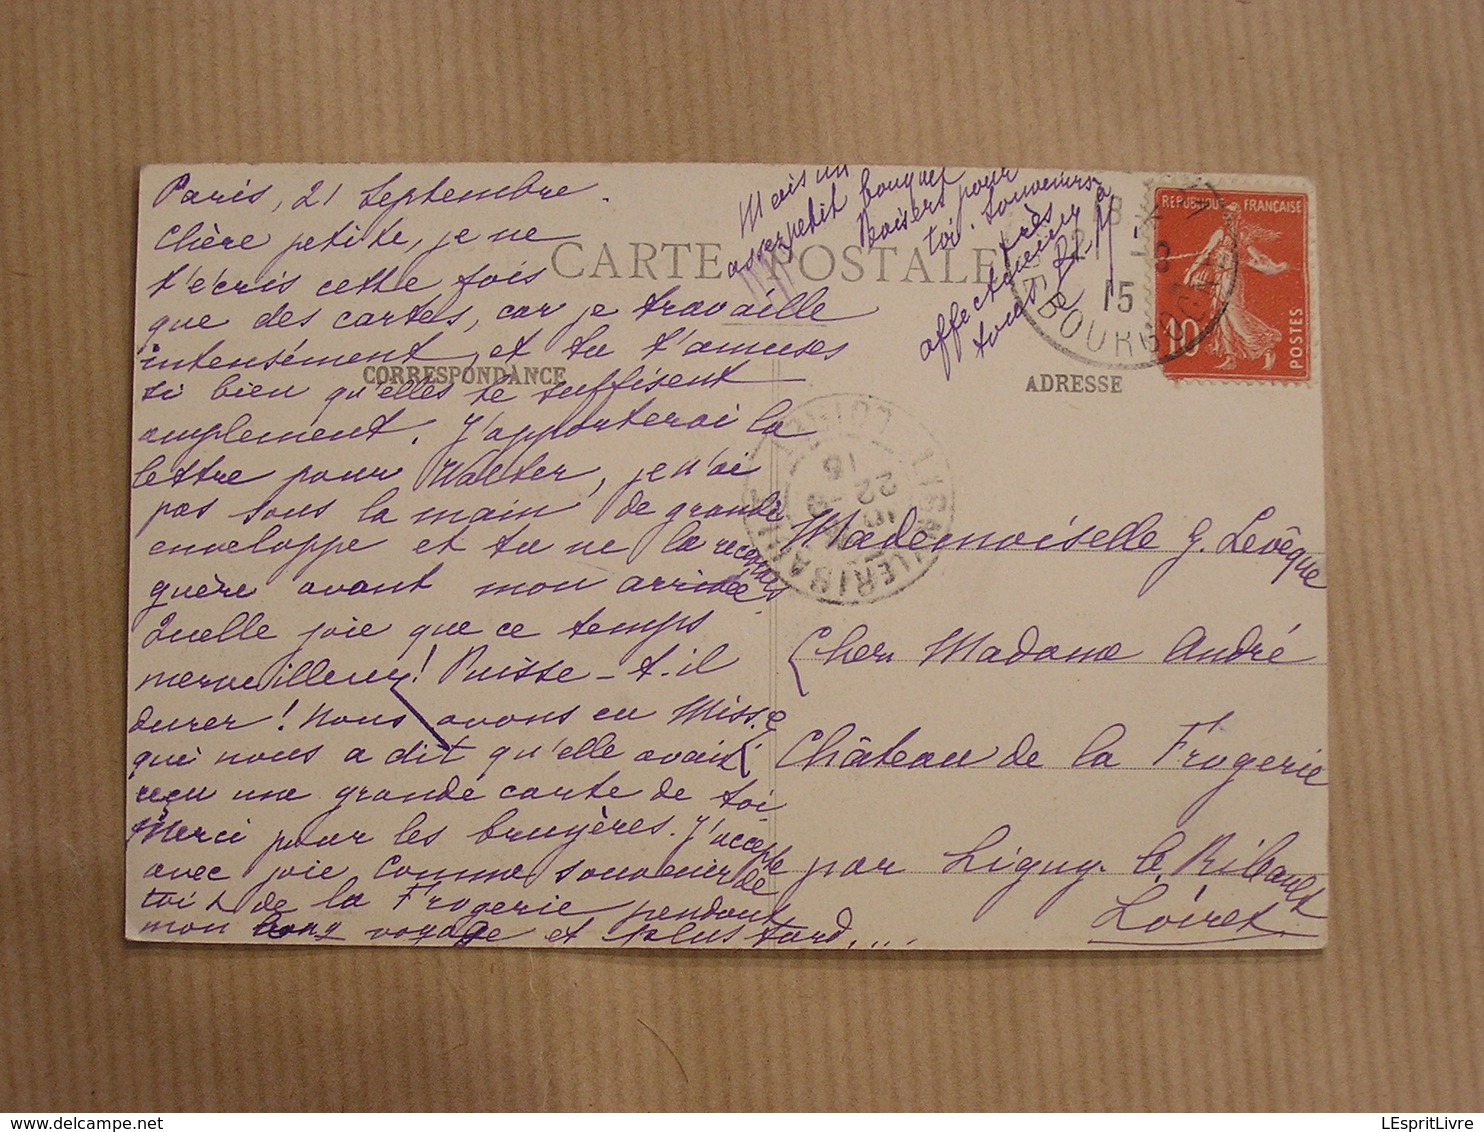 Paris, 21 Septembre.
Chère petite, je ne
t'écris cette fois
que des cartes, car je travaille
intensément et tu t'amuses
si bien qu'elles te suffisent
amplement. J'apporterai la
lettre pour Walter, je n'ai
pas sous la main de grande
enveloppe et tu ne la
guère avant mon arrivée.
Quelle joie que ce temps
merveilleux! Puisse-t-il
durer! Nous avons eu Miss.
qui nous a dit qu'elle avait
reçu une grande carte de toi
Merci pour les bruyères. J'accepte
avec joie comme souvenir de
toi & de la Frogerie pendant
mon long voyage et plus tard....
Mais un
assez petit bouquet
Baisers pour
toi. Souvenirs
très
affectueux à
tous
CARTE POSTALE
CORRESPONDANCE
ADRESSE
REPUBLIQUE FRANÇAISE
10
POSTES
15
Mademoiselle G. Levêque
Chez Madame André
Château de la Frogerie
par Ligny-le-Ribault
Loiret
LEspritLivre